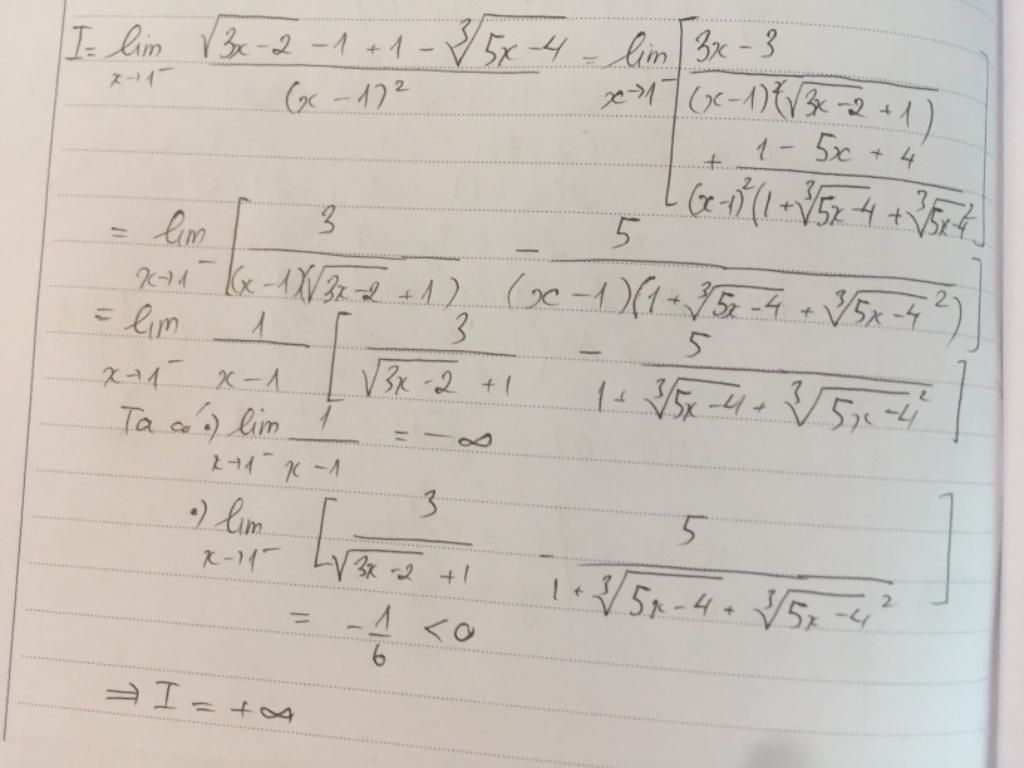 I = lim x→1⁻ (√(3x-2) - 1 + 1 - ∛(5x-4)) / (x-1)² = lim x→1⁻ [ (3x-3) / ((x-1)²(√(3x-2) + 1)) + (1 - 5x + 4) / ((x-1)²(1 + ∛(5x-4) + ∛(5x-4)²)) ]
= lim x→1⁻ [ 3 / ((x-1)(√(3x-2) + 1)) - 5 / ((x-1)(1 + ∛(5x-4) + ∛(5x-4)²)) ]
= lim x→1⁻ 1/(x-1) [ 3 / (√(3x-2) + 1) - 5 / (1 + ∛(5x-4) + ∛(5x-4)²) ]
Ta có: •) lim x→1⁻ 1/(x-1) = -∞
•) lim x→1⁻ [ 3 / (√(3x-2) + 1) - 5 / (1 + ∛(5x-4) + ∛(5x-4)²) ]
= -1/6 < 0
⇒ I = +∞